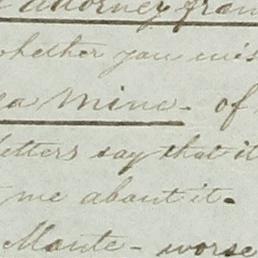 attorney from
whether you wis
a Mine - of
letters say that it
me about it.
Monte - worse